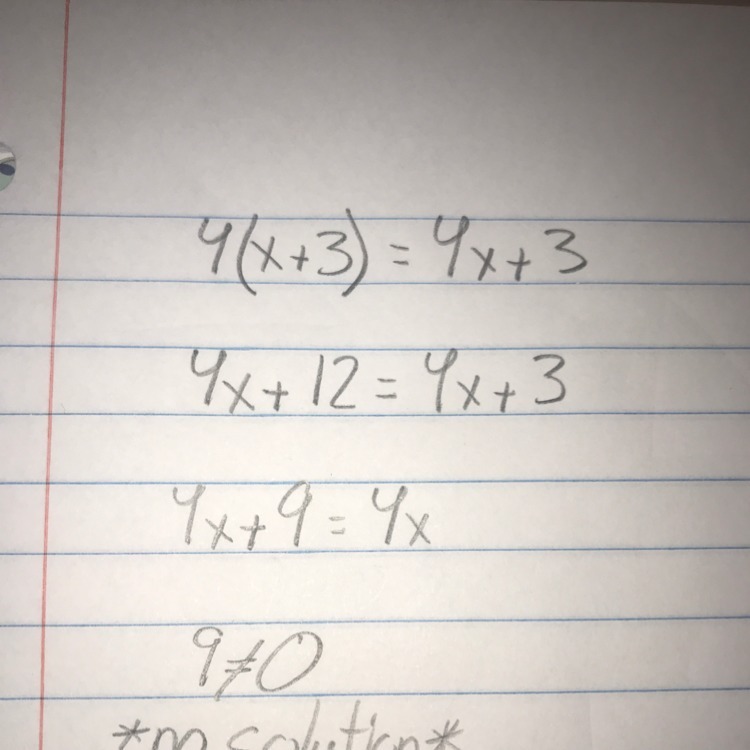 4(x+3) = 4x+3
4x+12 = 4x+3
4x+9 = 4x
9≠0
*no solution*